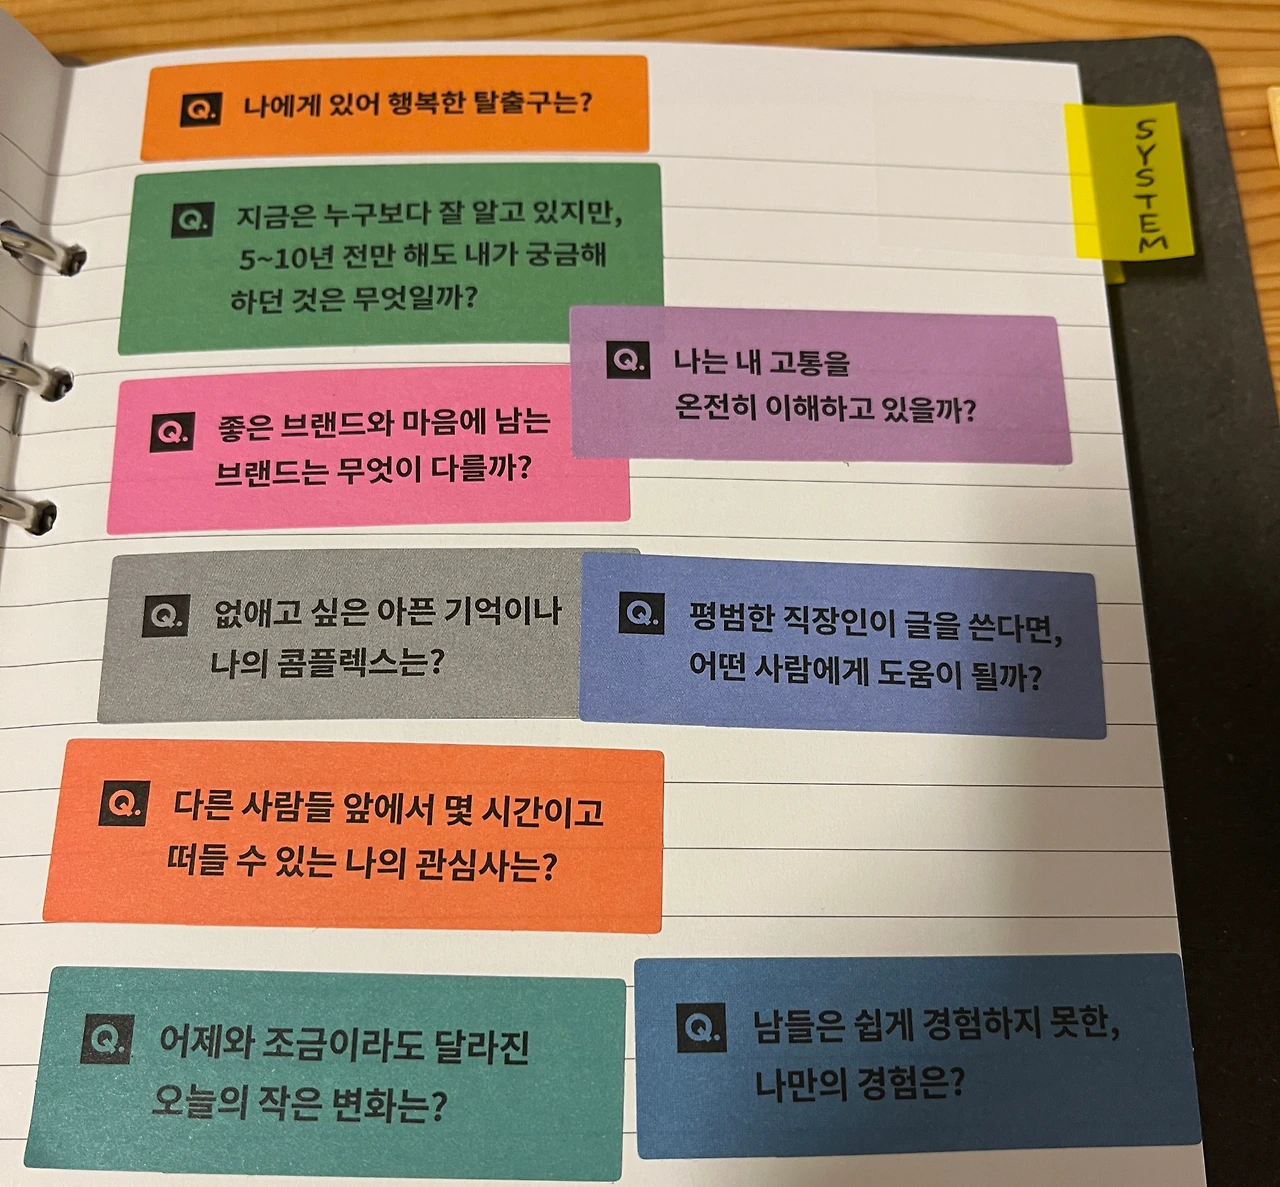 Q. 나에게 있어 행복한 탈출구는?
SYSTEM
Q. 지금은 누구보다 잘 알고 있지만,
5~10년 전만 해도 내가 궁금해
하던 것은 무엇일까?
Q. 나는 내 고통을
온전히 이해하고 있을까?
Q. 좋은 브랜드와 마음에 남는
브랜드는 무엇이 다를까?
Q. 없애고 싶은 아픈 기억이나
나의 콤플렉스는?
Q. 평범한 직장인이 글을 쓴다면,
어떤 사람에게 도움이 될까?
Q. 다른 사람들 앞에서 몇 시간이고
떠들 수 있는 나의 관심사는?
Q. 어제와 조금이라도 달라진
오늘의 작은 변화는?
Q. 남들은 쉽게 경험하지 못한,
나만의 경험은?